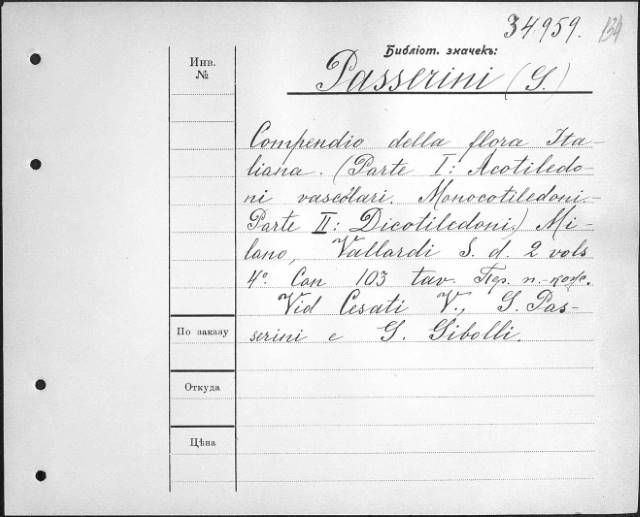 34959. 134
Библіот. значекъ:
Passerini (G.)
Инв.
№
Compendio della flora Ita-
liana. (Parte I: Acotiledo-
ni vascolari. Monocotiledoni.-
Parte II: Dicotiledoni.) Mi-
lano, Vallardi S. d. 2 vols
4º. Con 103 tav. Пер. п.-кож.
Vid Cesati V., G. Pas-
serini e G. Gibelli.
По заказу
Откуда
Цѣна